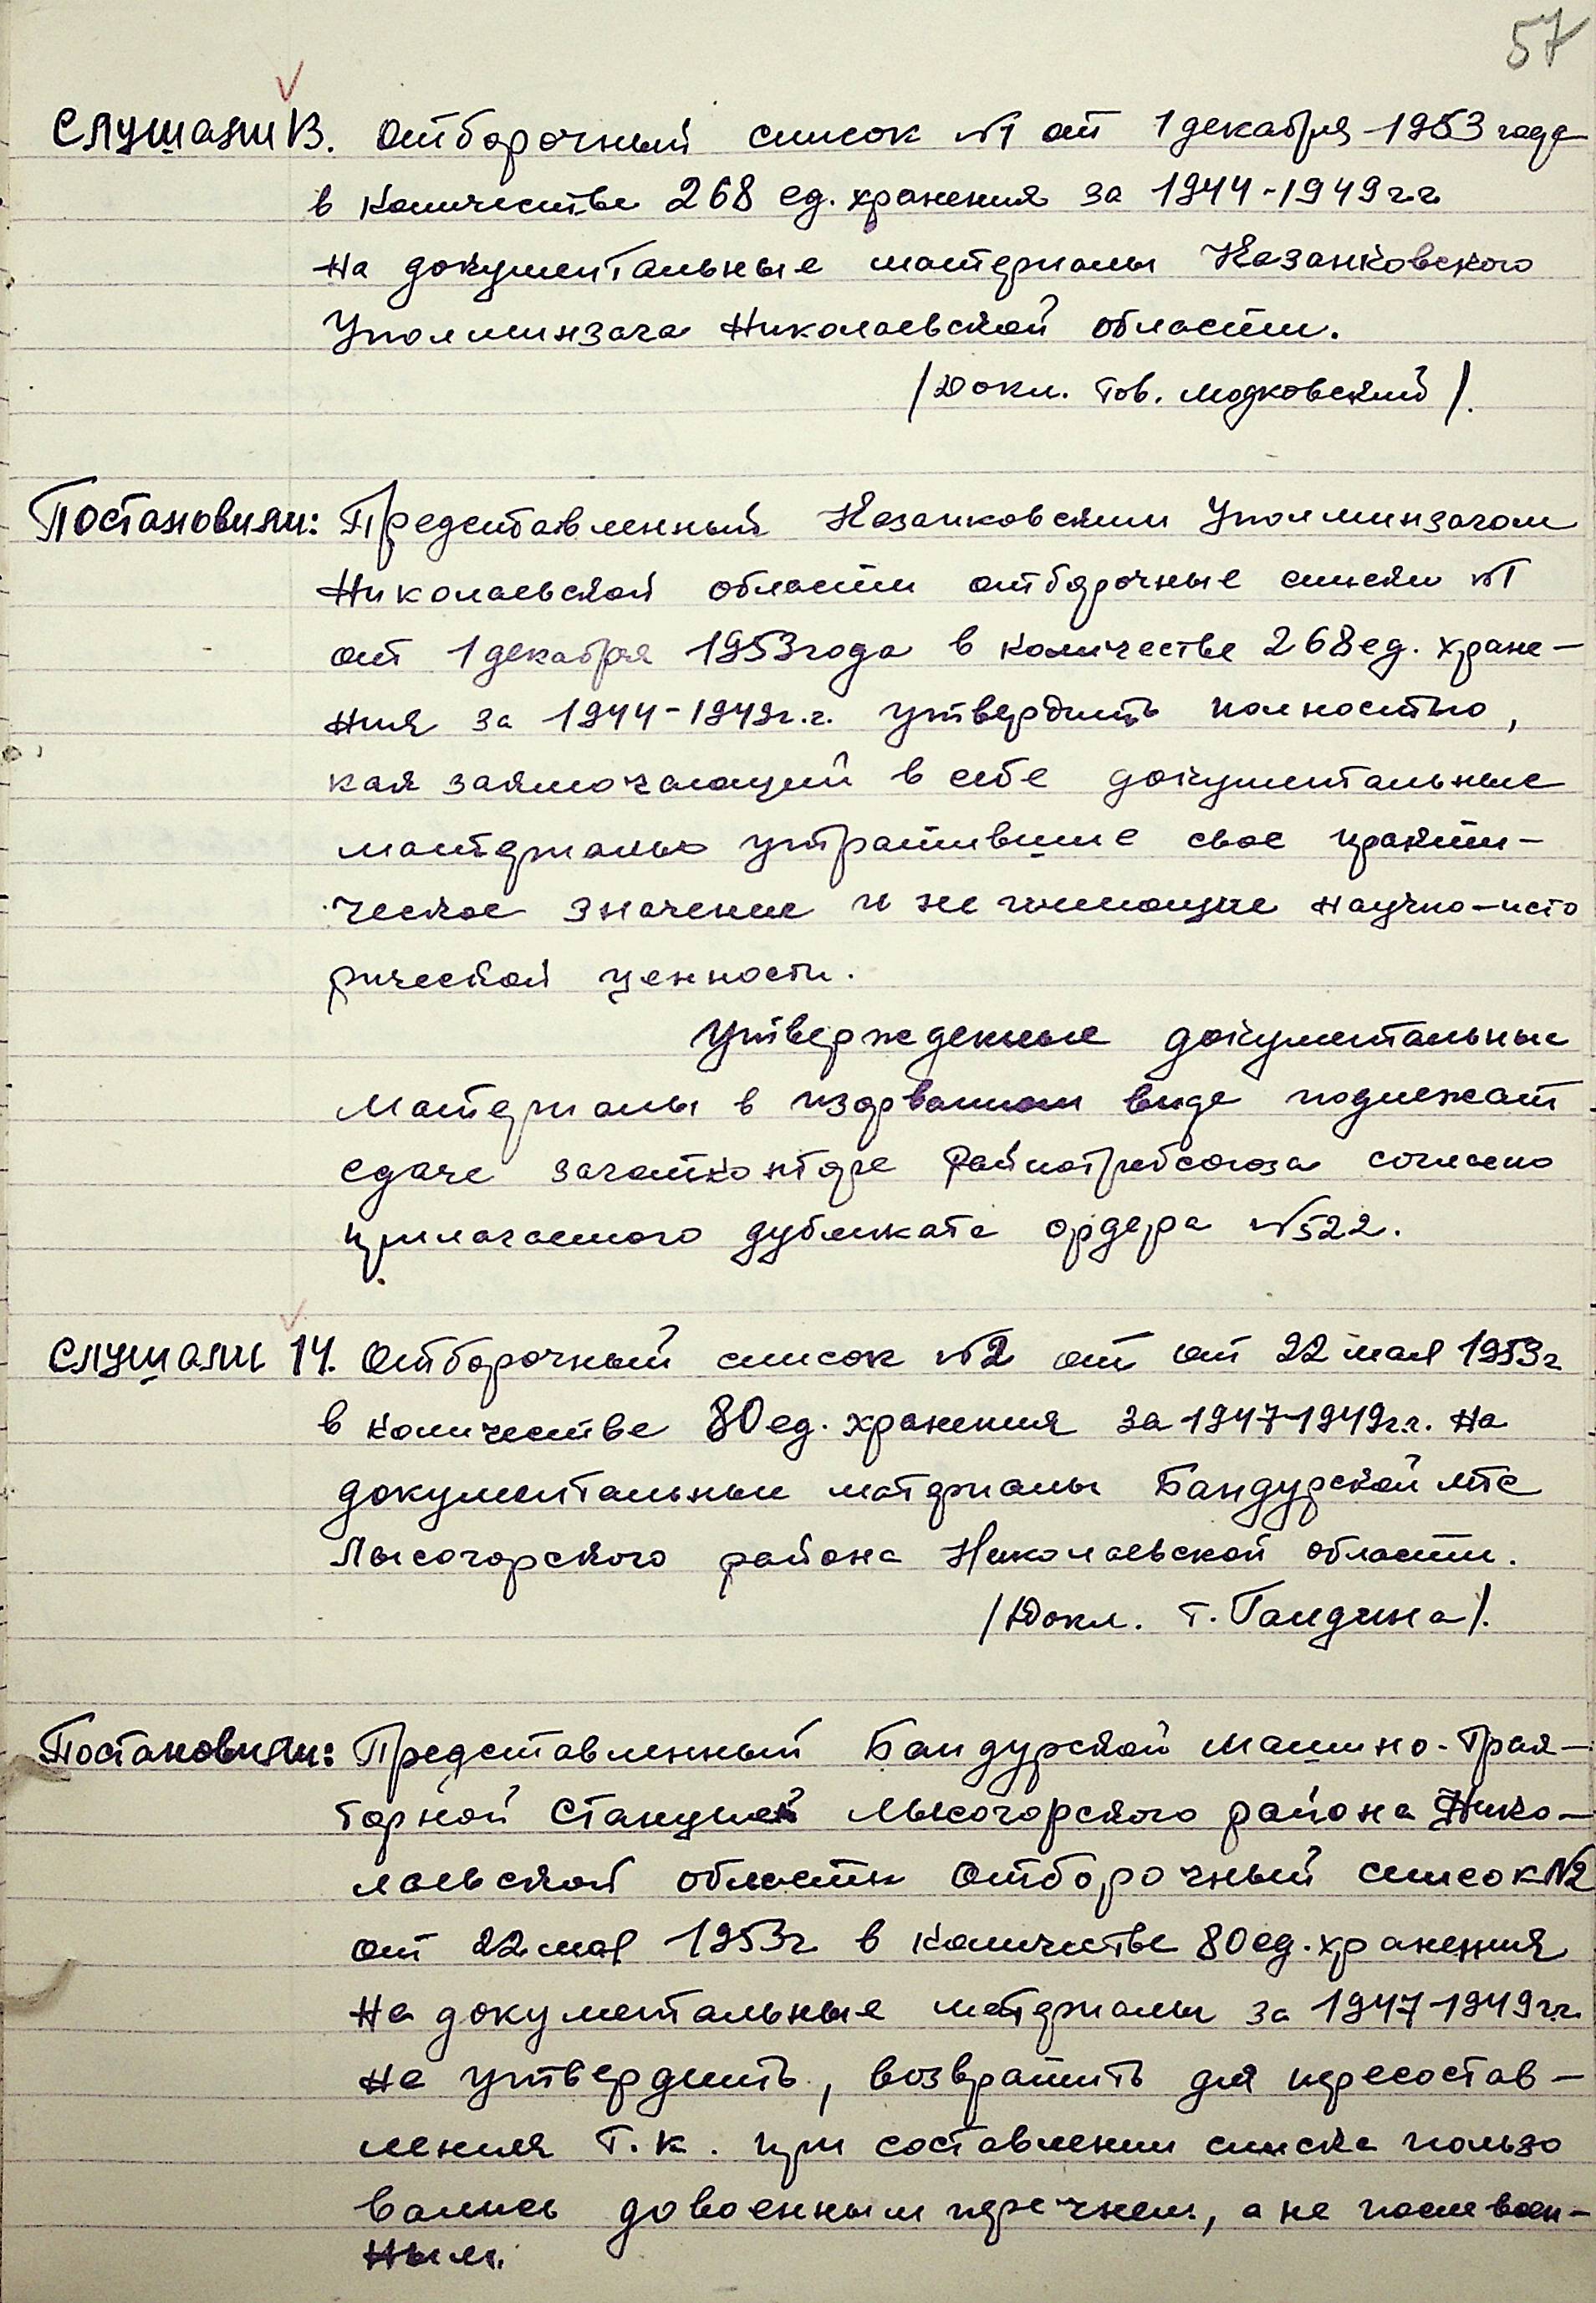 57
Слушали 13. Отборочный список №1 от 1 декабря 1953 года
в количестве 268 ед. хранения за 1944-1949 г.г.
на документальные материалы Казанковского
Уполминзага Николаевской области.
/Докл. тов. Модковский/.
Постановили: Представленный Казанковским Уполминзагом
Николаевской области отборочные списки №1
от 1 декабря 1953 года в количестве 268 ед. хране-
ния за 1944-1949 г.г. утвердить полностью,
как заключающий в себе документальные
материалы утратившие свое практи-
ческое значение и не имеющие научно-исто
рической ценности.
Утвержденные документальные
материалы в изорванном виде подлежат
сдаче заготконторе Райпотребсоюза согласно
прилагаемого дубликата ордера №522.
Слушали 14. Отборочный список №2 от от 22 мая 1953 г
в количестве 80 ед. хранения за 1947-1949 г.г. на
документальные материалы Бандурской МТС
Лысогорского района Николаевской области.
/Докл. т. Гандина/.
Постановили: Представленный Бандурской Машино-Трак-
торной Станцией Лысогорского района Нико-
лаевской области отборочный список №2
от 22 мая 1953 г в количестве 80 ед. хранения
на документальные материалы за 1947-1949 г.г.
не утвердить, возвратить для пересостав-
ления т.к. при составлении списка пользо
вались довоенным перечнем, а не послевоен-
ным.